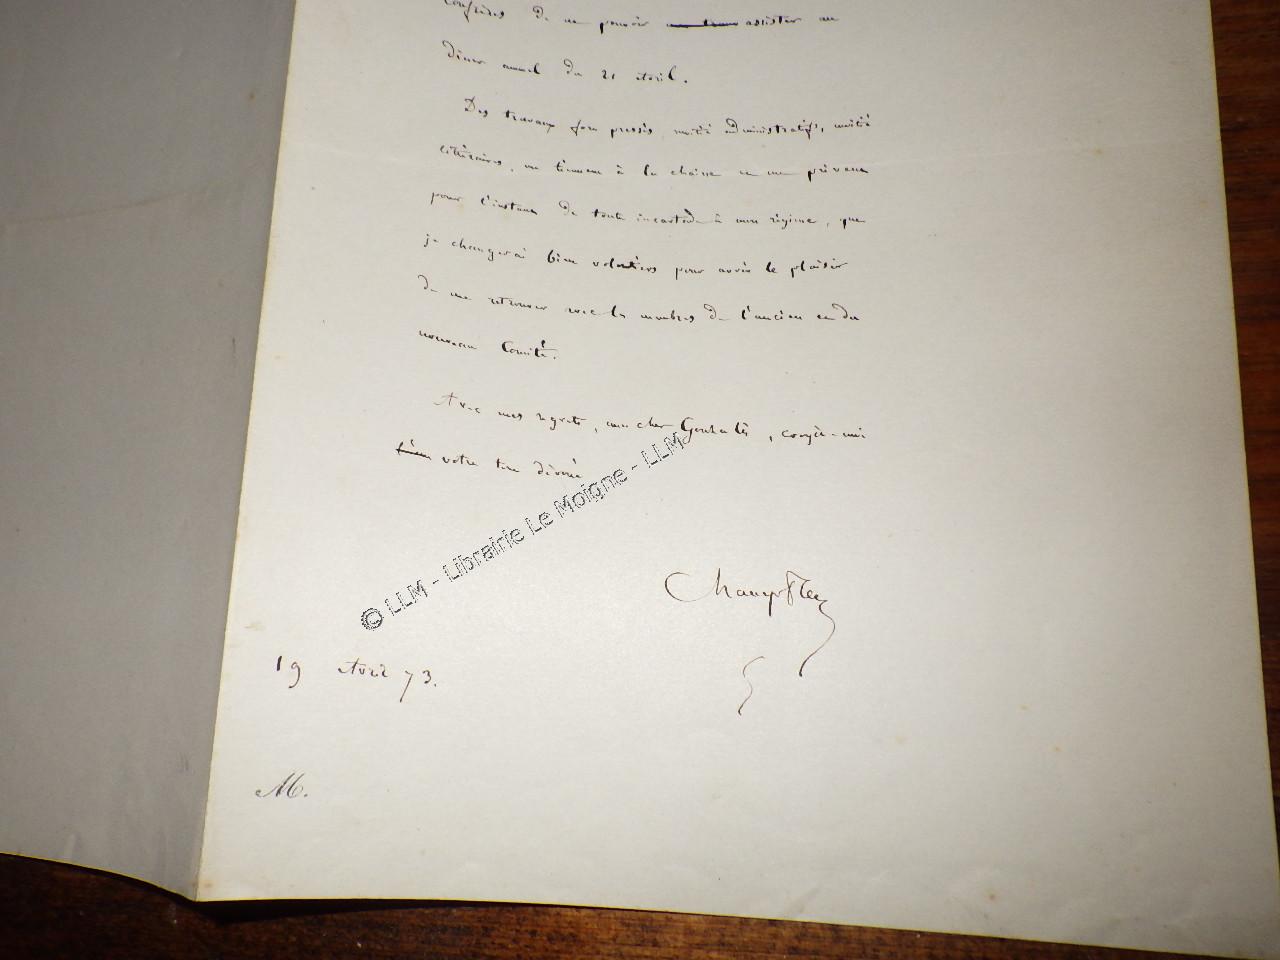 confrères de ne pouvoir assister au
diner annuel du 21 avril.
Des travaux fort pressés, moitié administratifs, moitié
littéraires, me tiennent à la chaine et me privent
pour l'instant de toute incartade à mon régime, que
je changerai bien volontiers pour avoir le plaisir
de me retrouver avec les membres de l'ancien et du
nouveau Comité.
Avec mes regrets, mon cher Gonzalès, croyez-moi
votre bien dévoué
Champfleury
19 Avril 73.
M.
© LLM - Librairie Le Moigne - LLM